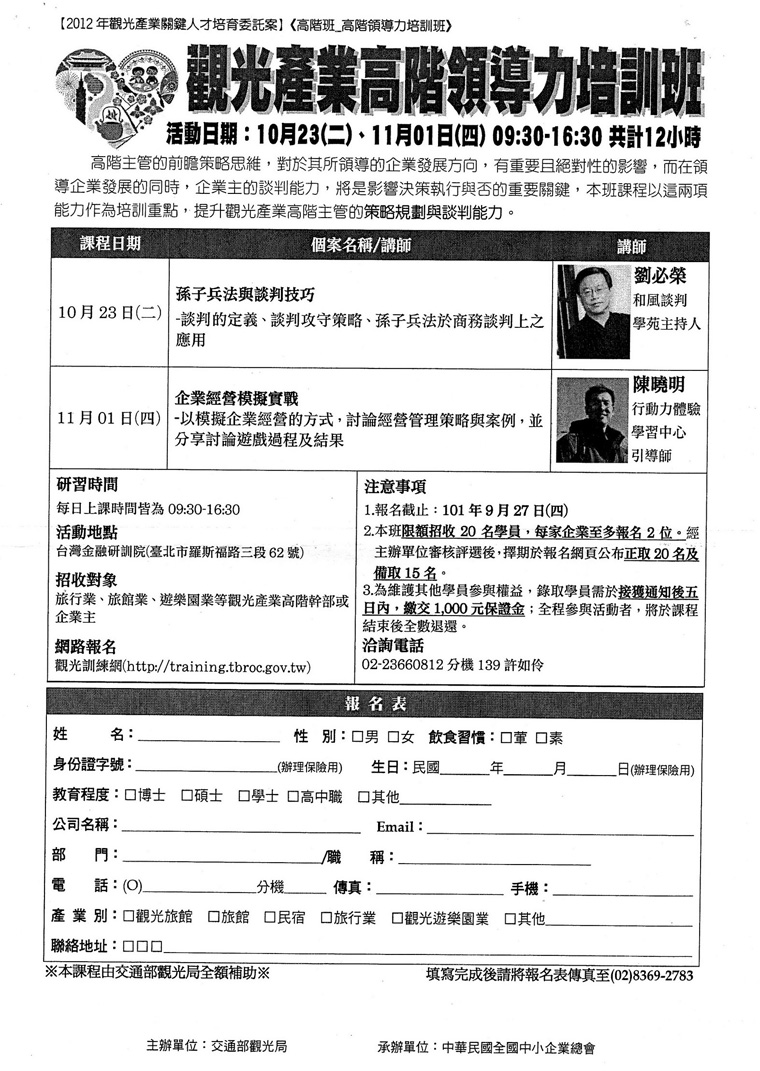 【2012年觀光產業關鍵人才培育委託案】《高階班_高階領導力培訓班》
觀光產業高階領導力培訓班
活動日期：10月23(二)、11月01日(四) 09:30-16:30 共計12小時
高階主管的前瞻策略思維，對於其所領導的企業發展方向，有重要且絕對性的影響，而在領
導企業發展的同時，企業主的談判能力，將是影響決策執行與否的重要關鍵，本班課程以這兩項
能力作為培訓重點，提升觀光產業高階主管的策略規劃與談判能力。
課程日期 個案名稱/講師 講師
10月23日(二)
孫子兵法與談判技巧
-談判的定義、談判攻守策略、孫子兵法於商務談判上之
應用
劉必榮
和風談判
學苑主持人
11月01日(四)
企業經營模擬實戰
-以模擬企業經營的方式，討論經營管理策略與案例，並
分享討論遊戲過程及結果
陳曉明
行動力體驗
學習中心
引導師
研習時間
每日上課時間皆為 09:30-16:30
活動地點
台灣金融研訓院(臺北市羅斯福路三段62號)
招收對象
旅行業、旅館業、遊樂園業等觀光產業高階幹部或
企業主
網路報名
觀光訓練網(http://training.tbroc.gov.tw)
注意事項
1.報名截止：101年9月27日(四)
2.本班限額招收20名學員，每家企業至多報名2位。經
主辦單位審核評選後，擇期於報名網頁公布正取20名及
備取15名。
3.為維護其他學員參與權益，錄取學員需於接獲通知後五
日內，繳交1,000元保證金；全程參與活動者，將於課程
結束後全數退還。
洽詢電話
02-23660812 分機 139 許如伶
報名表
姓 名：________ 性 別：□男 □女 飲食習慣：□葷 □素
身份證字號：________(辦理保險用) 生日：民國____年____月____日(辦理保險用)
教育程度：□博士 □碩士 □學士 □高中職 □其他________
公司名稱：________ Email：________
部 門：________/職 稱：________
電 話：(O)________分機____ 傳真：________ 手機：________
產 業 別：□觀光旅館 □旅館 □民宿 □旅行業 □觀光遊樂園業 □其他________
聯絡地址：□□□________
※本課程由交通部觀光局全額補助※ 填寫完成後請將報名表傳真至(02)8369-2783
主辦單位：交通部觀光局 承辦單位：中華民國全國中小企業總會